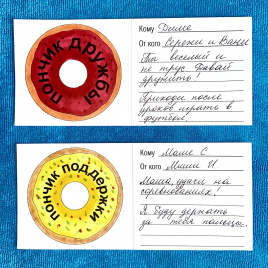 ПОНЧИК ДРУЖБЫ
Кому Диме
От кого Сережи и Вани
Ты веселый и
не трус. Давай
дружить!
Приходи после
уроков играть в
футбол!
ПОНЧИК ПОДДЕРЖКИ
Кому Маше С
От кого Миши И
Маша, удачи на
соревнованиях!
Я буду держать
за тебя пальцы.